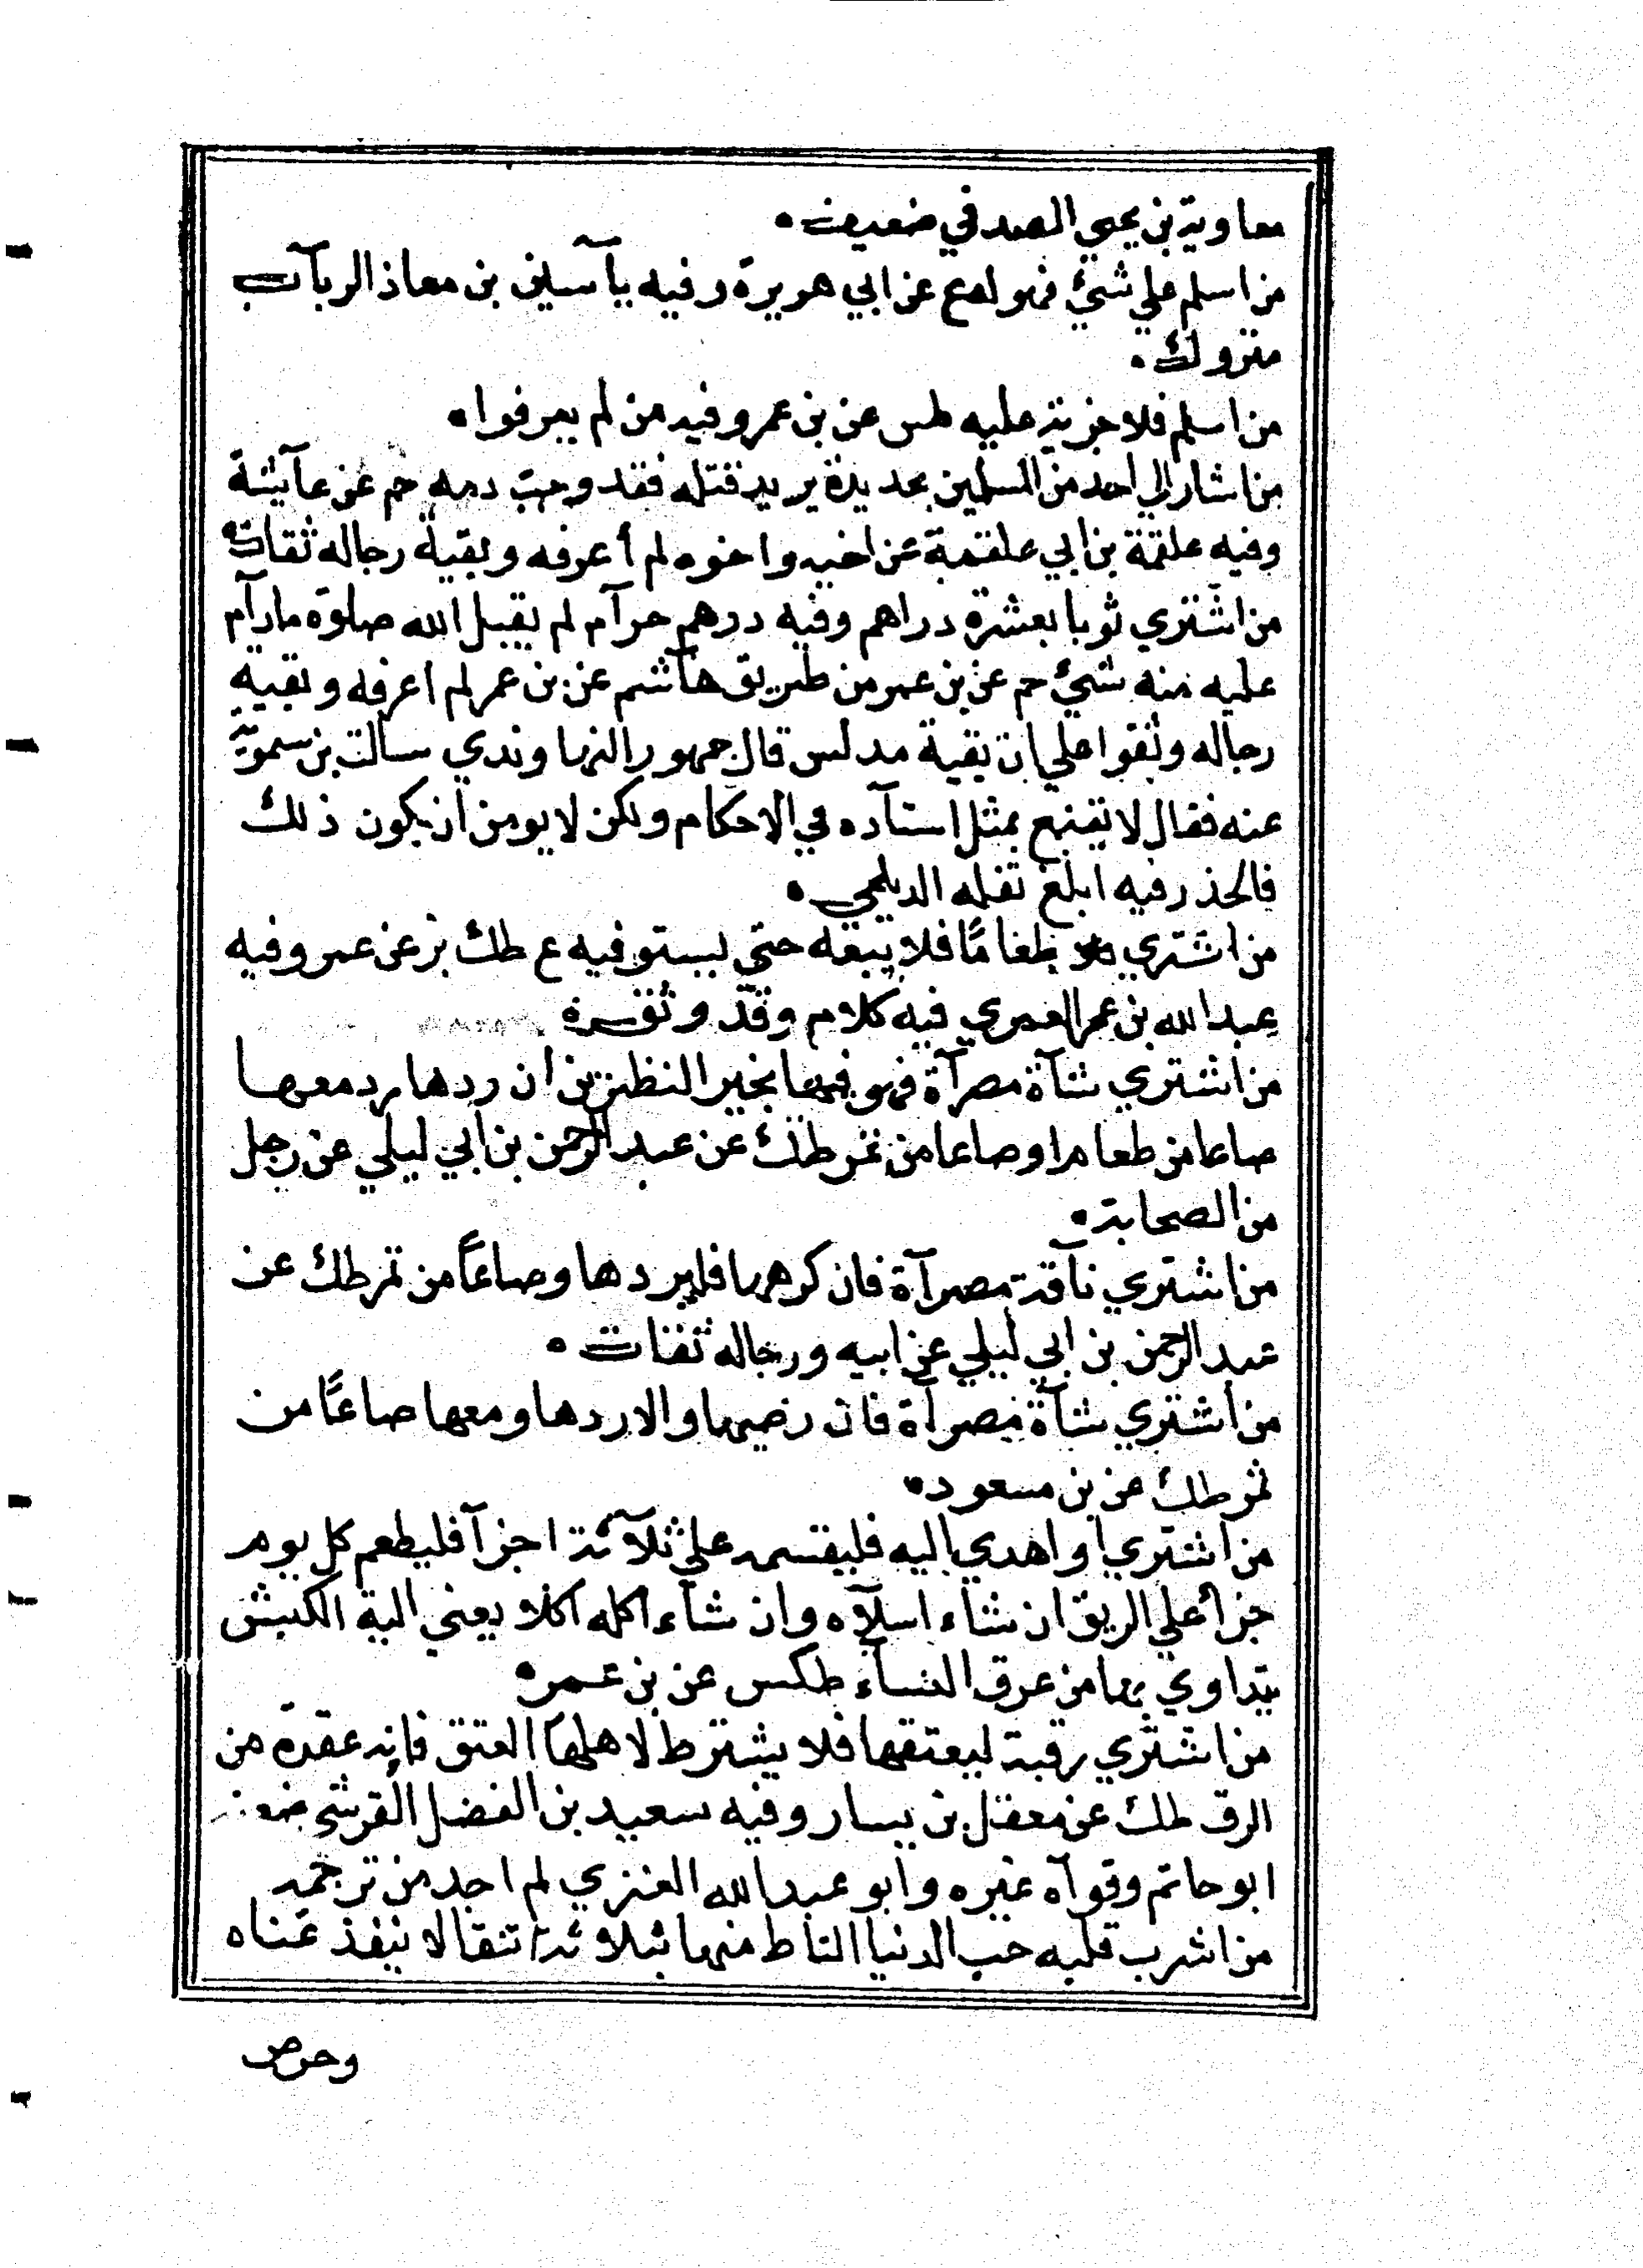 معاوية بن يحيي الصدفي ضعيف.
من اسلم علي شئ فهو له ع عن ابي هريرة وفيه ياسين بن معاذ الزيات
متروك.
من اسلم فلا جزية عليه طس عن بن عمر وفيه من لم يعرفوا.
من اشار الي احد من المسلمين بحديدة يريد قتله فقد وجب دمه حم عن عايشة
وفيه علقمة بن ابي علقمة عن اخيه واخوه لم أعرفه وبقية رجاله ثقات
من اشتري ثوبا بعشرة دراهم وفيه درهم حرآم لم يقبل الله صلوة مادآم
عليه منه شئ حم عن بن عمر من طريق هاشم عن بن عمر لم اعرفه وبقية
رجاله وثقوا علي ان بقية مدلس قال جمهور النهاوندي سالت بن سموية
عنه فقال لا تقنع بمثل اسناده في الاحكام ولكن لا يومن ان يكون ذلك
فالحذر فيه ابلغ نقله الديلمي.
من اشتري طعاماً فلا يبعه حتي يستوفيه ع طك بز عن عمر وفيه
عبد الله بن عمر العمري فيه كلام وقد وثق
من اشتري شآة مصرآة فهو فيها بخير النظرين ان ردها رد معها
صاعا من طعام اوصاعا من تمر طك عن عبد الرحمن بن ابي ليلي عن رجل
من الصحابة.
من اشتري ناقة مصرآة فان كرهها فليردها وصاعاً من تمر طك عن
عبد الرحمن بن ابي ليلي عن ابيه ورجاله ثقات.
من اشتري شآة مصرآة فان رضيها والا ردها ومعها صاعاً من
تمر طك عن بن مسعود.
من اشتري او اهدي اليه فليقسمه علي ثلاثة اجزآ فليطعم كل يوم
جزأ علي الريق ان شاء اسلاه وان شاء اكله اكلا يعني الية الكبش
يتداوي بها من عرق النساء طكس عن بن عمر.
من اشتري رقبة ليعتقها فلا يشترط لاهلها العتق فانه عقدة من
الرق طك عن معقل بن يسار وفيه سعيد بن الفضل القرشي ضعفه
ابو حاتم وقوآه غيره وابو عبد الله العنزي لم اجد من ترجمه
من اشرب قلبه حب الدنيا التاط منها بثلاثة شقا لا ينفذ عناه
وحرص